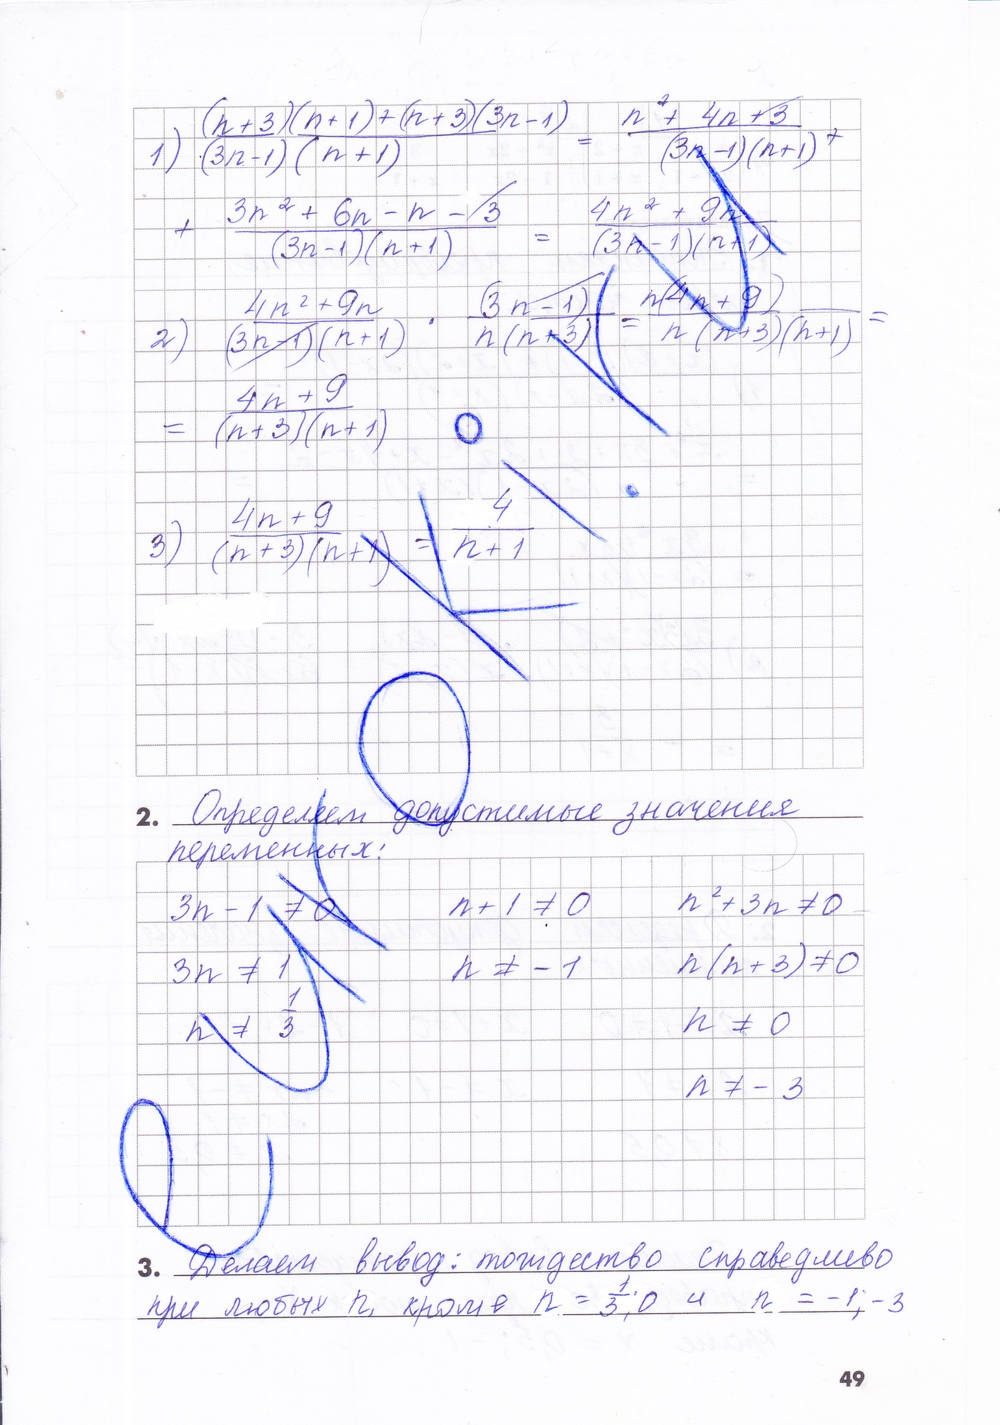 1) ((n+3)(n+1)+(n+3)(3n-1))/((3n-1)(n+1)) = (n²+4n+3)/((3n-1)(n+1)) +
+ (3n²+6n-n-3)/((3n-1)(n+1)) = (4n²+9n)/((3n-1)(n+1))
2) (4n²+9n)/((3n-1)(n+1)) · (3n-1)/(n(n+3)) = n(4n+9)/(n(n+3)(n+1)) =
= (4n+9)/((n+3)(n+1))
3) (4n+9)/((n+3)(n+1)) = 4/(n+1)
2. Определяем допустимые значения
переменных:
3n-1≠0 n+1≠0 n²+3n≠0
3n≠1 n≠-1 n(n+3)≠0
n≠1/3 n≠0
n≠-3
3. Делаем вывод: тождество справедливо
при любых n, кроме n=1/3;0 и n=-1;-3
49
euroki.ru